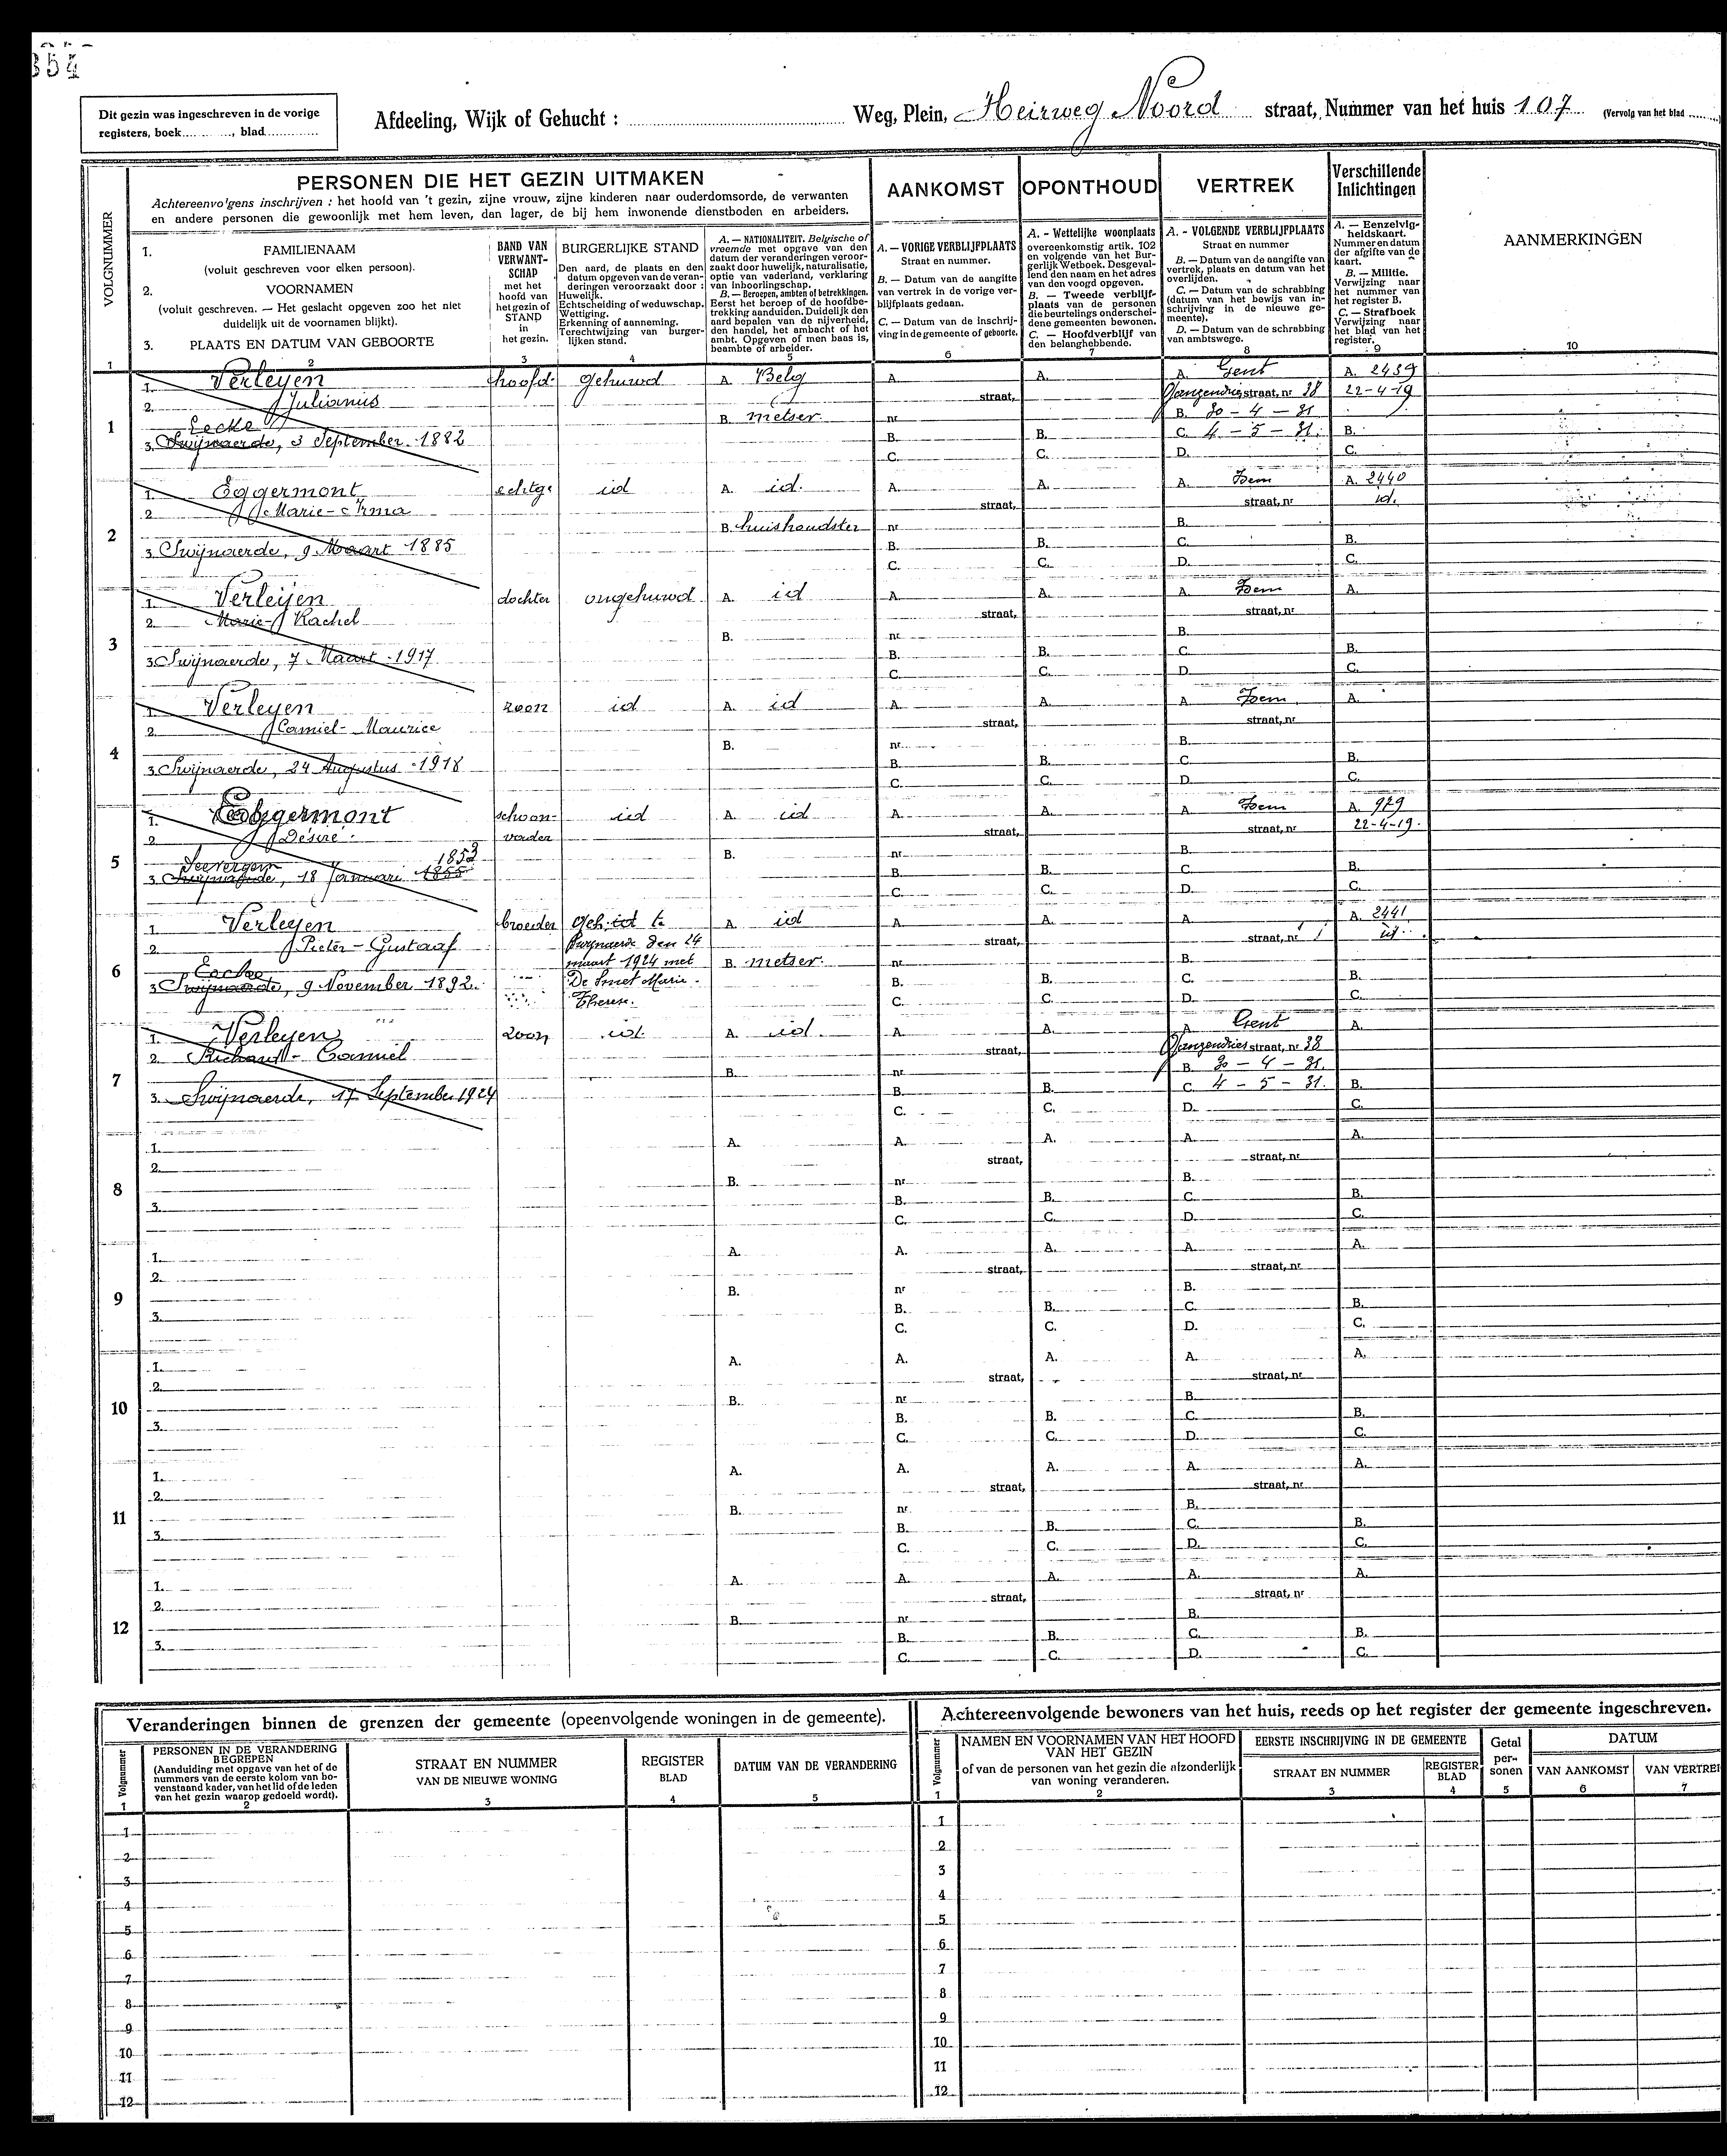 354
Dit gezin was ingeschreven in de vorige
registers, boek............, blad..............
Afdeeling, Wijk of Gehucht : Weg, Plein, Heirweg Noord straat, Nummer van het huis 107 (Vervolg van het blad
VOLGNUMMER
PERSONEN DIE HET GEZIN UITMAKEN
Achtereenvo'gens inschrijven : het hoofd van 't gezin, zijne vrouw, zijne kinderen naar ouderdomsorde, de verwanten
en andere personen die gewoonlijk met hem leven, dan lager, de bij hem inwonende dienstboden en arbeiders.
AANKOMST
OPONTHOUD
VERTREK
Verschillende
Inlichtingen
AANMERKINGEN
1. FAMILIENAAM
(voluit geschreven voor elken persoon).
2. VOORNAMEN
(voluit geschreven. — Het geslacht opgeven zoo het niet
duidelijk uit de voornamen blijkt).
3. PLAATS EN DATUM VAN GEBOORTE
BAND VAN
VERWANT-
SCHAP
met het
hoofd van
het gezin of
STAND
in
het gezin.
BURGERLIJKE STAND
Den aard, de plaats en den
datum opgeven van de veran-
deringen veroorzaakt door :
Huwelijk.
Echtscheiding of weduwschap.
Wettiging.
Erkenning of aanneming.
Terechtwijzing van burger-
lijken stand.
A. — NATIONALITEIT. Belgische of
vreemde met opgave van den
datum der veranderingen veroor-
zaakt door huwelijk, naturalisatie,
optie van vaderland, verklaring
van inboorlingschap.
B. — Beroepen, ambten of betrekkingen.
Eerst het beroep of de hoofdbe-
trekking aanduiden. Duidelijk den
aard bepalen van de nijverheid,
den handel, het ambacht of het
ambt. Opgeven of men baas is,
beambte of arbeider.
A. — VORIGE VERBLIJFPLAATS
Straat en nummer.
B. — Datum van de aangifte
van vertrek in de vorige ver-
blijfplaats gedaan.
C. — Datum van de inschrij-
ving in de gemeente of geboorte.
A. - Wettelijke woonplaats
overeenkomstig artik. 102
en volgende van het Bur-
gerlijk Wetboek. Desgeval-
lend den naam en het adres
van den voogd opgeven.
B. — Tweede verblijf-
plaats van de personen
die beurtelings onderschei-
dene gemeenten bewonen.
C. — Hoofdverblijf van
den belanghebbende.
A. - VOLGENDE VERBLIJFPLAATS
Straat en nummer
B. — Datum van de aangifte van
vertrek, plaats en datum van het
overlijden.
C. — Datum van de schrabbing
(datum van het bewijs van in-
schrijving in de nieuwe ge-
meente).
D. — Datum van de schrabbing
van ambtswege.
A. — Eenzelvig-
heidskaart.
Nummer en datum
der afgifte van de
kaart.
B. — Militie.
Verwijzing naar
het nummer van
het register B.
C. — Strafboek
Verwijzing naar
het blad van het
register.
1 2 3 4 5 6 7 8 9 10
1
1. Verleyen hoofd- gehuwd A. Belg A. A. A. Gent A. 2439
2. Julianus straat, Ganzendries straat, nr 38 22-4-19
B. metser nr B. 30 - 4 - 31
Eecke
3. Swijnaerde, 3 September 1882 B. B. C. 4 - 5 - 31. B.
C. C. D. C.
2
1. Eggermont echtge id A. id. A. A. A. Idem A. 2440
2. Marie-Irma straat, straat, nr id.
B. huishoudster nr B.
3. Swijnaerde, 9 Maart 1885 B. B. C. B.
C. C. D. C.
3
1. Verleijen dochter ongehuwd A. id A. A. A. Idem A.
2. Marie-Rachel straat, straat, nr
B. nr B.
3. Swijnaerde, 7 Maart 1917 B. B. C. B.
C. C. D. C.
4
1. Verleyen zoon id A. id A. A. A. Idem A.
2. Camiel-Maurice straat, straat, nr
B. nr B.
3. Swijnaerde, 24 Augustus 1918 B. B. C. B.
C. C. D. C.
5
1. Eggermont schoon- id A. id A. A. A. Idem A. 929
2. Désiré vader straat, straat, nr 22-4-19.
B. nr B.
Seevergem 1853
3. Swijnaerde, 18 Januari 1855 B. B. C. B.
C. C. D. C.
6
1. Verleyen broeder geh. id te A. id A. A. A. A. 2441
2. Pieter-Gustaaf Swijnaerde den 24 straat, straat, nr id.
maart 1924 met B. metser. nr B.
Eecke
3. Swijnaerde, 9 November 1892. De Smet Marie- B. B. C. B.
Therese. C. C. D. C.
7
1. Verleyen zoon id. A. id. A. A. A. Gent A.
2. Richard-Camiel straat, Ganzendries straat, nr 38
B. nr B. 30 - 4 - 31.
3. Swijnaerde, 17 September 1924 B. B. C. 4 - 5 - 31. B.
C. C. D. C.
8
1. A. A. A. A. A.
2. straat, straat, nr
B. nr B.
3. B. B. C. B.
C. C. D. C.
9
1. A. A. A. A. A.
2. straat, straat, nr
B. nr B.
3. B. B. C. B.
C. C. D. C.
10
1. A. A. A. A. A.
2. straat, straat, nr
B. nr B.
3. B. B. C. B.
C. C. D. C.
11
1. A. A. A. A. A.
2. straat, straat, nr
B. nr B.
3. B. B. C. B.
C. C. D. C.
12
1. A. A. A. A. A.
2. straat, straat, nr
B. nr B.
3. B. B. C. B.
C. C. D. C.
Veranderingen binnen de grenzen der gemeente (opeenvolgende woningen in de gemeente).
Volgnummer
PERSONEN IN DE VERANDERING
BEGREPEN
(Aanduiding met opgave van het of de
nummers van de eerste kolom van bo-
venstaand kader, van het lid of de leden
van het gezin waarop gedoeld wordt).
STRAAT EN NUMMER
VAN DE NIEUWE WONING
REGISTER
BLAD
DATUM VAN DE VERANDERING
1 2 3 4 5
1
2
3
4
5
6
7
8
9
10
11
12
Achtereenvolgende bewoners van het huis, reeds op het register der gemeente ingeschreven.
Volgnummer
NAMEN EN VOORNAMEN VAN HET HOOFD
VAN HET GEZIN
of van de personen van het gezin die afzonderlijk
van woning veranderen.
EERSTE INSCHRIJVING IN DE GEMEENTE
STRAAT EN NUMMER
REGISTER
BLAD
Getal
per-
sonen
DATUM
VAN AANKOMST
VAN VERTRE
1 2 3 4 5 6 7
1
2
3
4
5
6
7
8
9
10
11
12